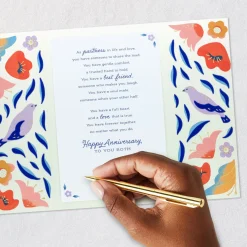 As partners in life and love,
you have someone to share the most.
You have gentle comfort,
a trusted friend always.
You have a best friend,
someone who makes you laugh.
You have a soul mate,
someone who's your other half.
You have a full heart
and a love that is true.
You have forever together
no matter what you do.
Happy Anniversary,
TO YOU BOTH!